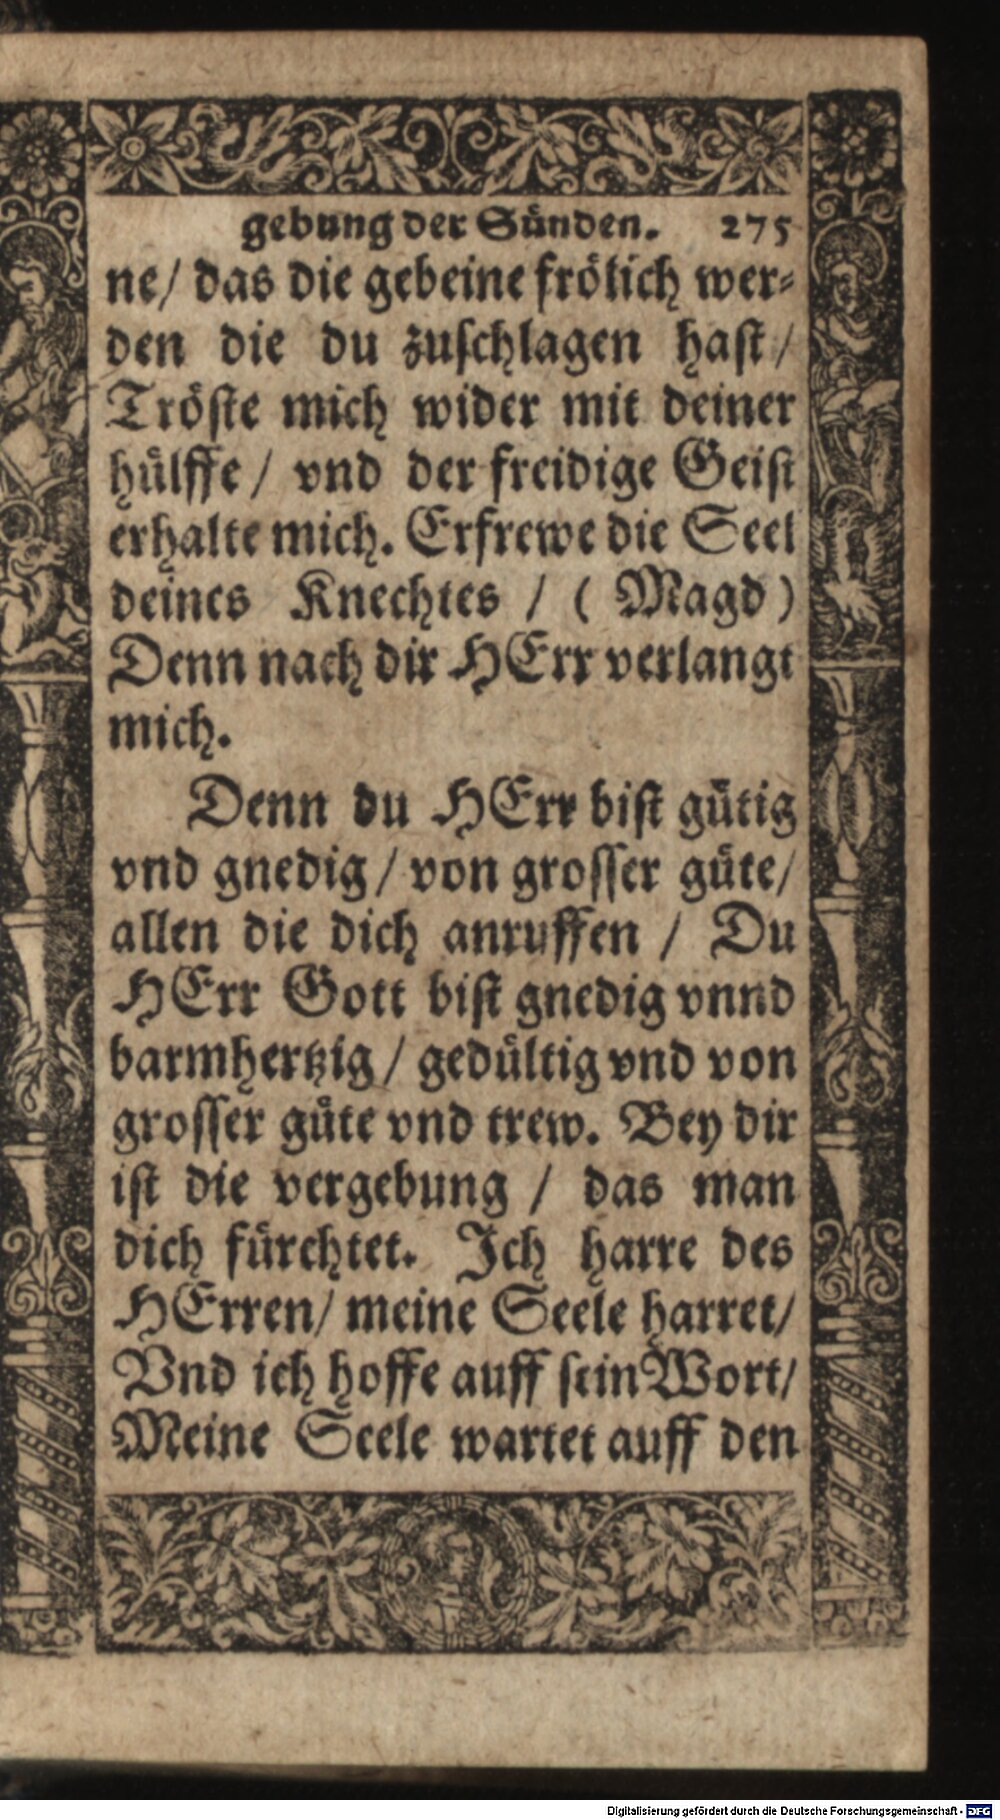 gebung der Sünden. 275
ne/ das die gebeine frölich wer-
den die du zuſchlagen haſt/
Tröſte mich wider mit deiner
hülffe/ vnd der freidige Geiſt
erhalte mich. Erfrewe die Seel
deines Knechtes / ( Magd )
Denn nach dir HErr verlangt
mich.
Denn du HErr biſt gütig
vnd gnedig/ von groſſer güte/
allen die dich anruffen / Du
HErr Gott biſt gnedig vnnd
barmhertzig/ gedültig vnd von
groſſer güte vnd trew. Bey dir
iſt die vergebung / das man
dich fürchtet. Ich harre des
HErren/ meine Seele harret/
Vnd ich hoffe auff ſein Wort/
Meine Seele wartet auff den
Digitalisierung gefördert durch die Deutsche Forschungsgemeinschaft - DFG